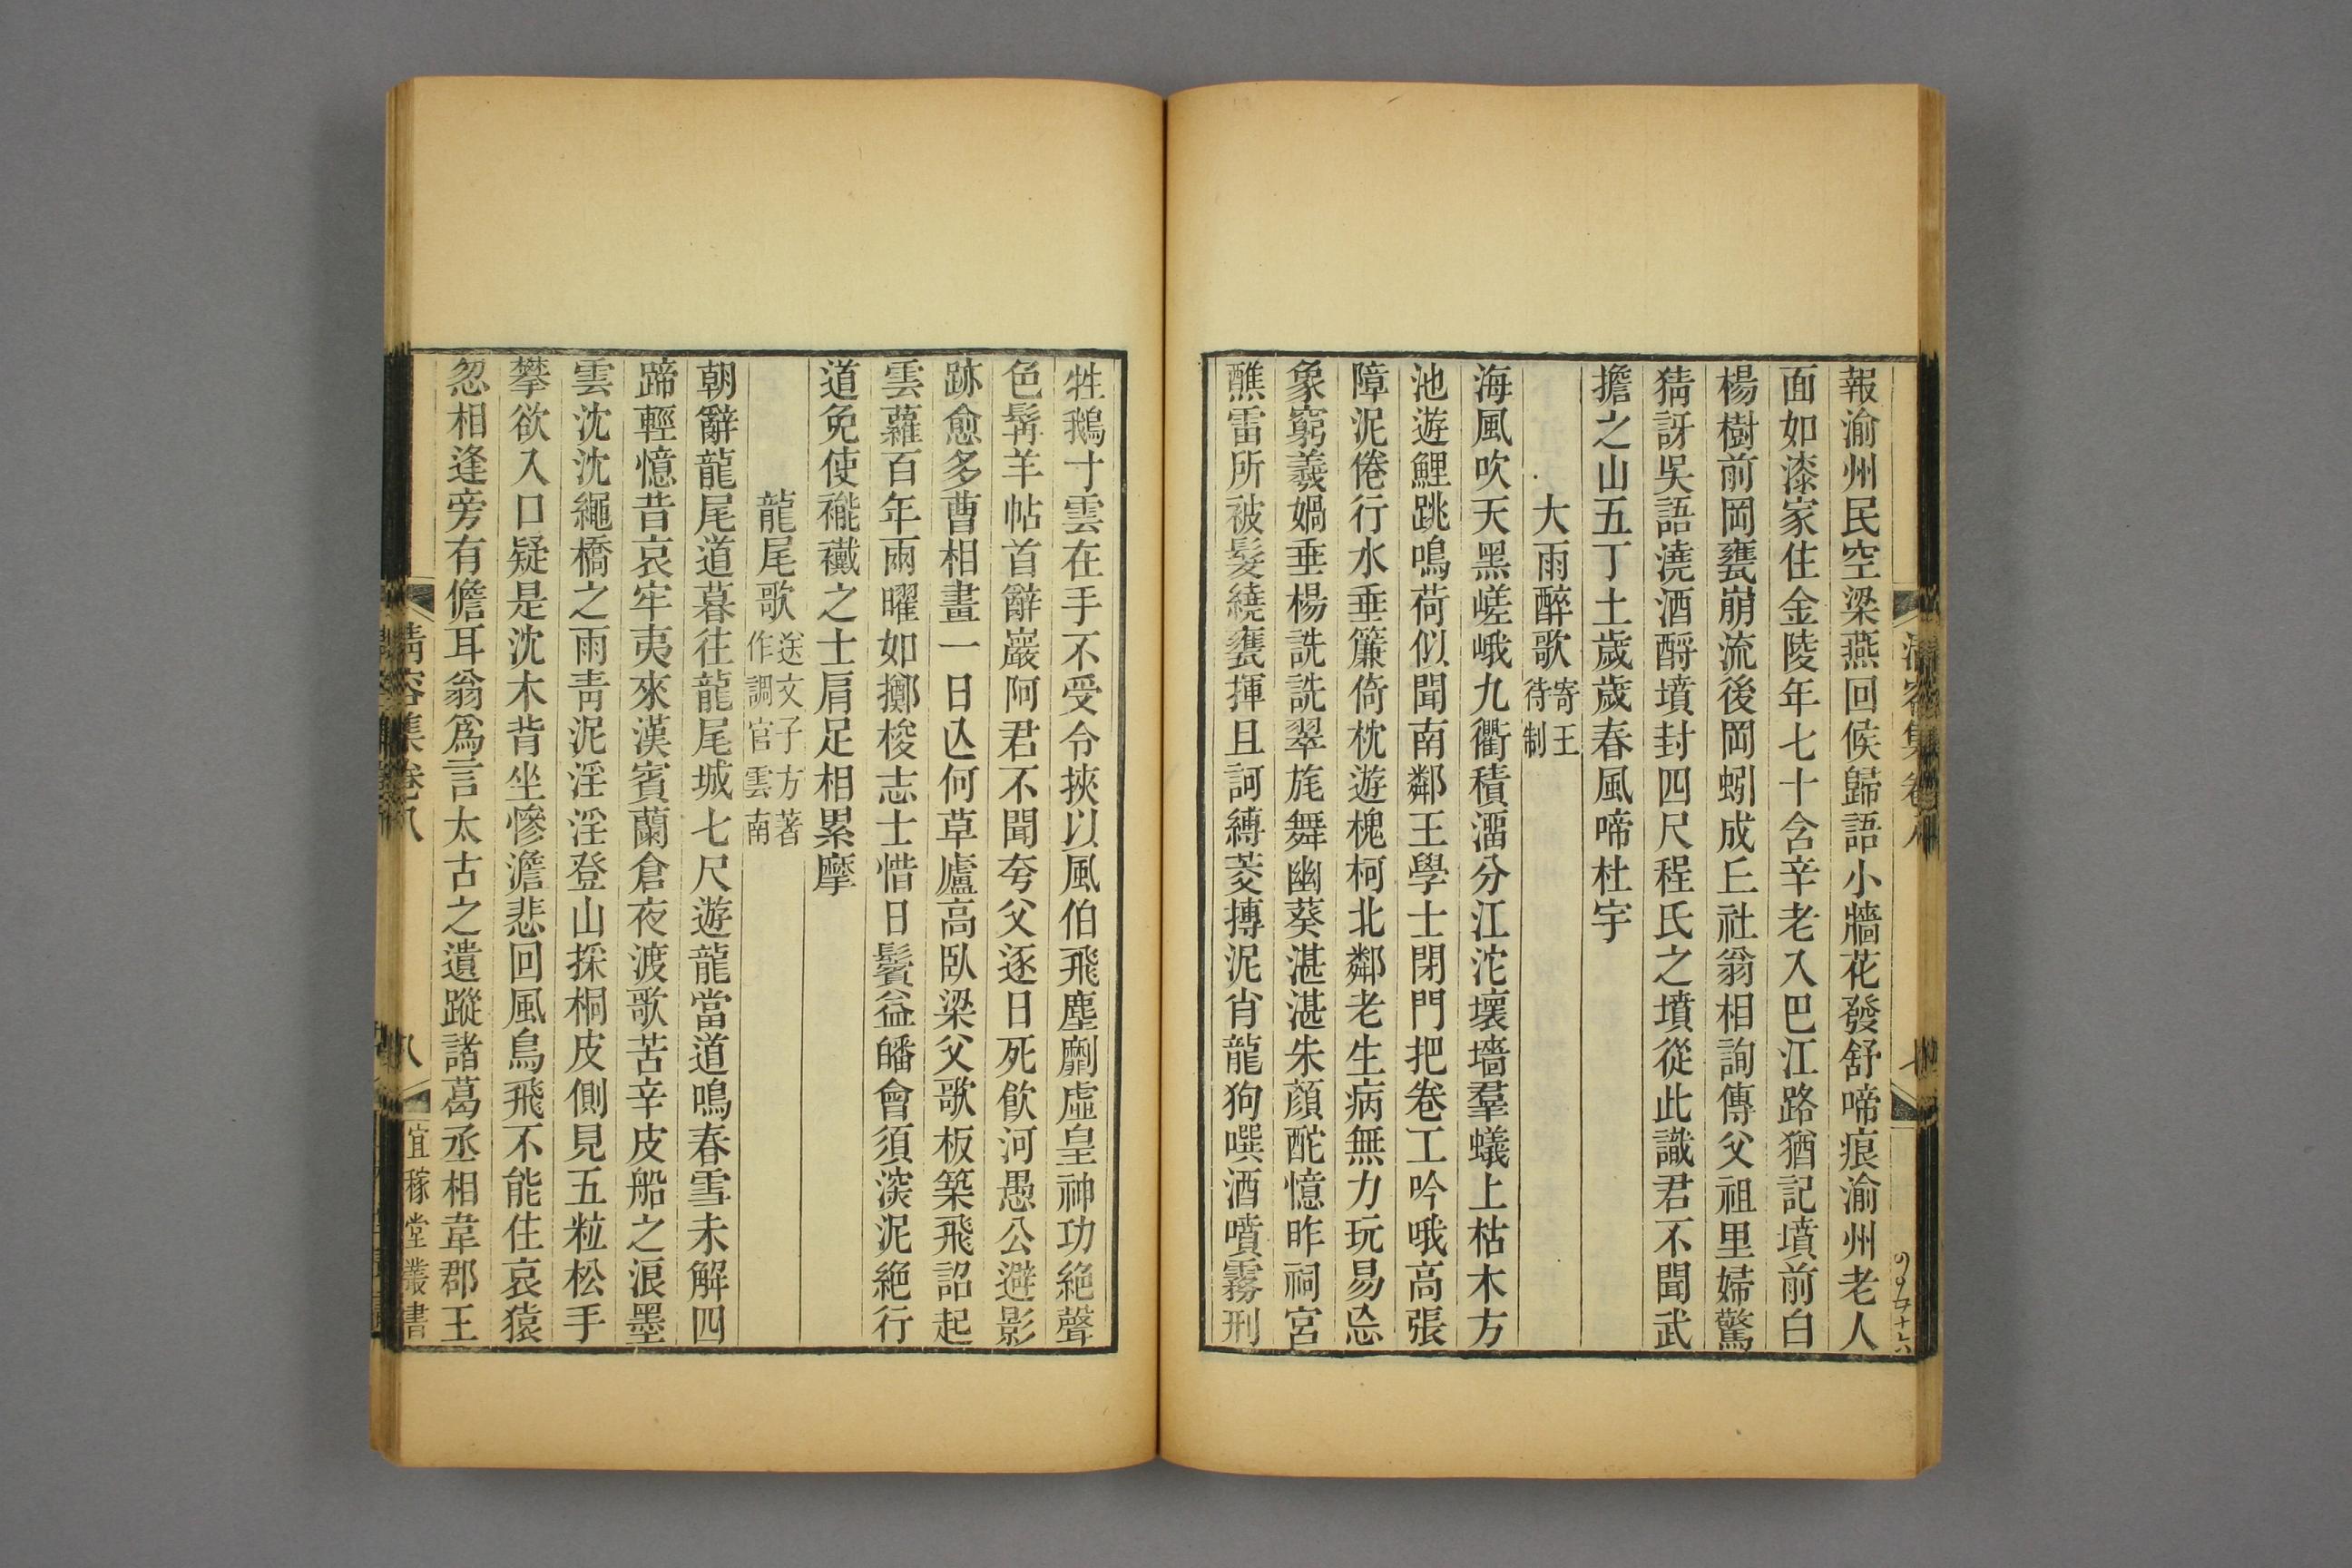 報渝州民空梁燕回候歸語小牆花發舒啼痕渝州老人
面如漆家住金陵年七十含辛老入巴江路猶記墳前白
楊樹前岡甕崩流後岡蚓成丘社翁相詢傳父祖里婦驚
猜訝吳語澆酒酹墳封四尺程氏之墳從此識君不聞武
擔之山五丁土歲歲春風啼杜宇
大雨醉歌寄王待制
海風吹天黑嵯峨九衢積澑分江沱壞墻羣蟻上枯木方
池遊鯉跳鳴荷似聞南鄰王學士閉門把卷工吟哦高張
障泥倦行水垂簾倚枕遊槐柯北鄰老生病無力玩易忘
象窮羲媧垂楊詵詵翠旄舞幽葵湛湛朱顏酡憶昨祠宮
醮雷所被髮繞甕揮且訶縛菱摶泥肖龍狗噀酒噴霧刑
牲鵝寸雲在手不受令挾以風伯飛塵劘虛皇神功絶聲
色髯羊帖首辭巖阿君不聞夸父逐日死飲河愚公避影
跡愈多曹相畫一日亾何草廬高臥梁父歌板築飛詔起
雲蘿百年兩曜如擲梭志士惜日鬢益皤會須滾泥絶行
道免使褦襶之士肩足相累摩
龍尾歌送文子方著作調官雲南
朝辭龍尾道暮往龍尾城七尺遊龍當道鳴春雪未解四
蹄輕憶昔哀牢夷來漢賓蘭倉夜渡歌苦辛皮船之浪墨
雲沈沈繩橋之雨靑泥淫淫登山採桐皮側見五粒松手
攀欲入口疑是沈木背坐慘澹悲回風鳥飛不能住哀猿
忽相逢旁有儋耳翁爲言太古之遺蹤諸葛丞相韋郡王
清容集卷八
八
宜稼堂叢書